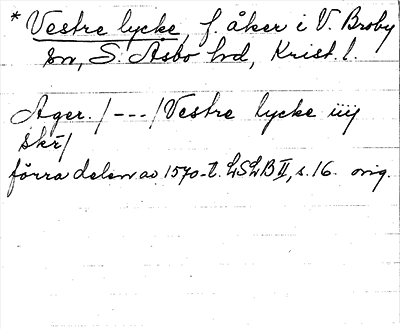 * Vestre lycke, f. åker i V. Broby
sn, S. Åsbo hd, Krist. l.
Ager. / --- / Vestre lycke iiij
skr̄ /
förra delen av 1570-t. LSLB II, s. 16. orig.